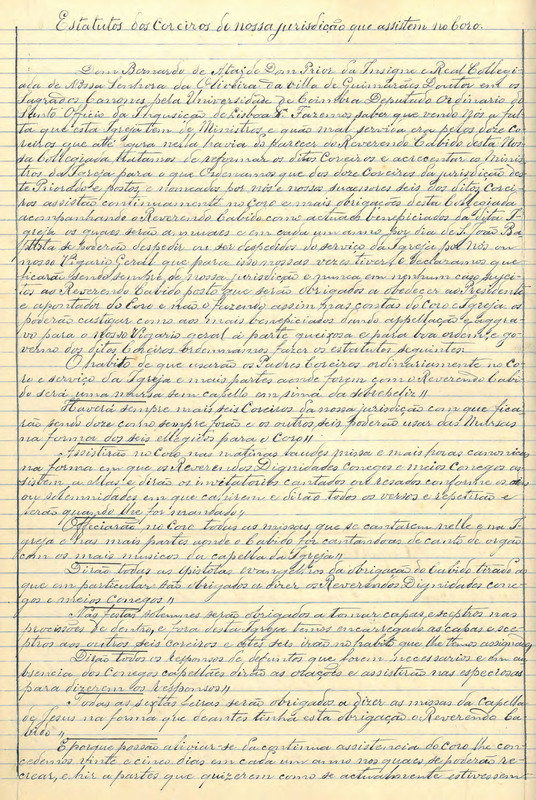 Estatutos dos Coreiros de nossa jurisdição que assistem no Coro.
Dom Bernardo de Ataide Dom Prior da Insigne e Real Collegi-
ada de Nossa Senhora da Oliveira da Villa de Guimarães Doutor em os
Sagrados Canones pela Universidade de Coimbra Deputado Ordinario do
Santo Officio da Inquisição de Lisboa Fazemos saber que vendo Nós a fal-
ta que esta Igreja tem de Ministros, e quão mal servida era pelos doze Co-
reiros que até gora nella havia do parecer do Reverendo Cabido desta Nos-
sa Collegiada tratamos de reformar os ditos Coreiros e acrecentar os Minis-
tros da Igreja para o que Ordenamos que dos doze Coreiros da jurisdição des-
te Priorado e postos, e nomeados por nós e nossos sucessores seis dos ditos Corei-
ros assistão continuamente no Coro e mais obrigações desta Collegiada
acompanhando o Reverendo Cabido como actuaes beneficiados da dita I-
greja os quaes serão annuaes e em cada um anno por dia de S. João Ba-
ptista se poderão despedir ou ser despedidos do serviço da Igreja por Nós ou
nosso Vigario Geral que para isso nossas vezes tiver, e declaramos que
ficarão sendo sempre de nossa jurisdição e nunca em nenhum caso sujei-
tos ao Reverendo Cabido posto que serão obrigados a obedecer ao Presidente
e apontador do Coro e não o fazendo assim nas coisas do Coro e Igreja os
poderão castigar como aos mais beneficiados dando appellação e aggra-
vo para o nosso Vigario geral á parte queixosa e para boa ordem, e go-
verno dos ditos Coreiros ordenamos fazer os estatutos seguintes.
O habito de que usarão os Padres Coreiros ordinariamente no Co-
ro e serviço da Igreja e mais partes aonde forem com o Reverendo Cabi-
do será uma mursa sem capello em sima da sobrepeliz //
Haverá sempre mais seis Coreiros da nossa jurisdição com que fica-
rão sendo doze como sempre forão e os outros seis poderão usar das Mursas
na forma dos seis ellegidos para o Coro //
Assistirão no Coro nas matinas laudes missa e mais horas canonicas
na forma em que os Reverendos Dignidades conegos e meios Conegos as-
sistem a ellas e dirão os invitatorios cantados ou resados conforme os dias
ou solemnidades em que cahirem e dirão todos os versos e repetirão e
lerão quando lhe for mandado //
Officiarão no Coro todas as missas que se cantarem nelle e na I-
greja e nas mais partes aonde o Cabido for cantandoas de canto de orgão
com os mais musicos da capella da Igreja //
Dirão todas as epistolas evangelhos da obrigação do Cabido tirado as
que em particular são obrigados a dizer os Reverendos Dignidades cone-
gos e meios Conegos //
Nas festas solemnes serão obrigados a tomar capas e sceptros nas
procissões de dentro, e fora desta Igreja temos encarregado as capas e sce-
ptros aos outros seis coreiros e estes seis irão no habito que lhe temos assignado,
Dirão todos os responsos de defuntos que forem necessarios e em au-
sencia dos Conegos capellães dirão as orações e assistirão nas especiosas
para dizerem os responsos //
Todas as sextas feiras serão obrigados a dizer as missas da Capella
de Jesus na forma que deantes tinha esta obrigação o Reverendo Ca-
bido //
E porque possão aliviar-se da continua assistencia do coro lhe con-
cedemos vinte e cinco dias em cada um anno nos quaes se poderão re-
crear, e hir a partes que quizerem como se actualmente estivessem